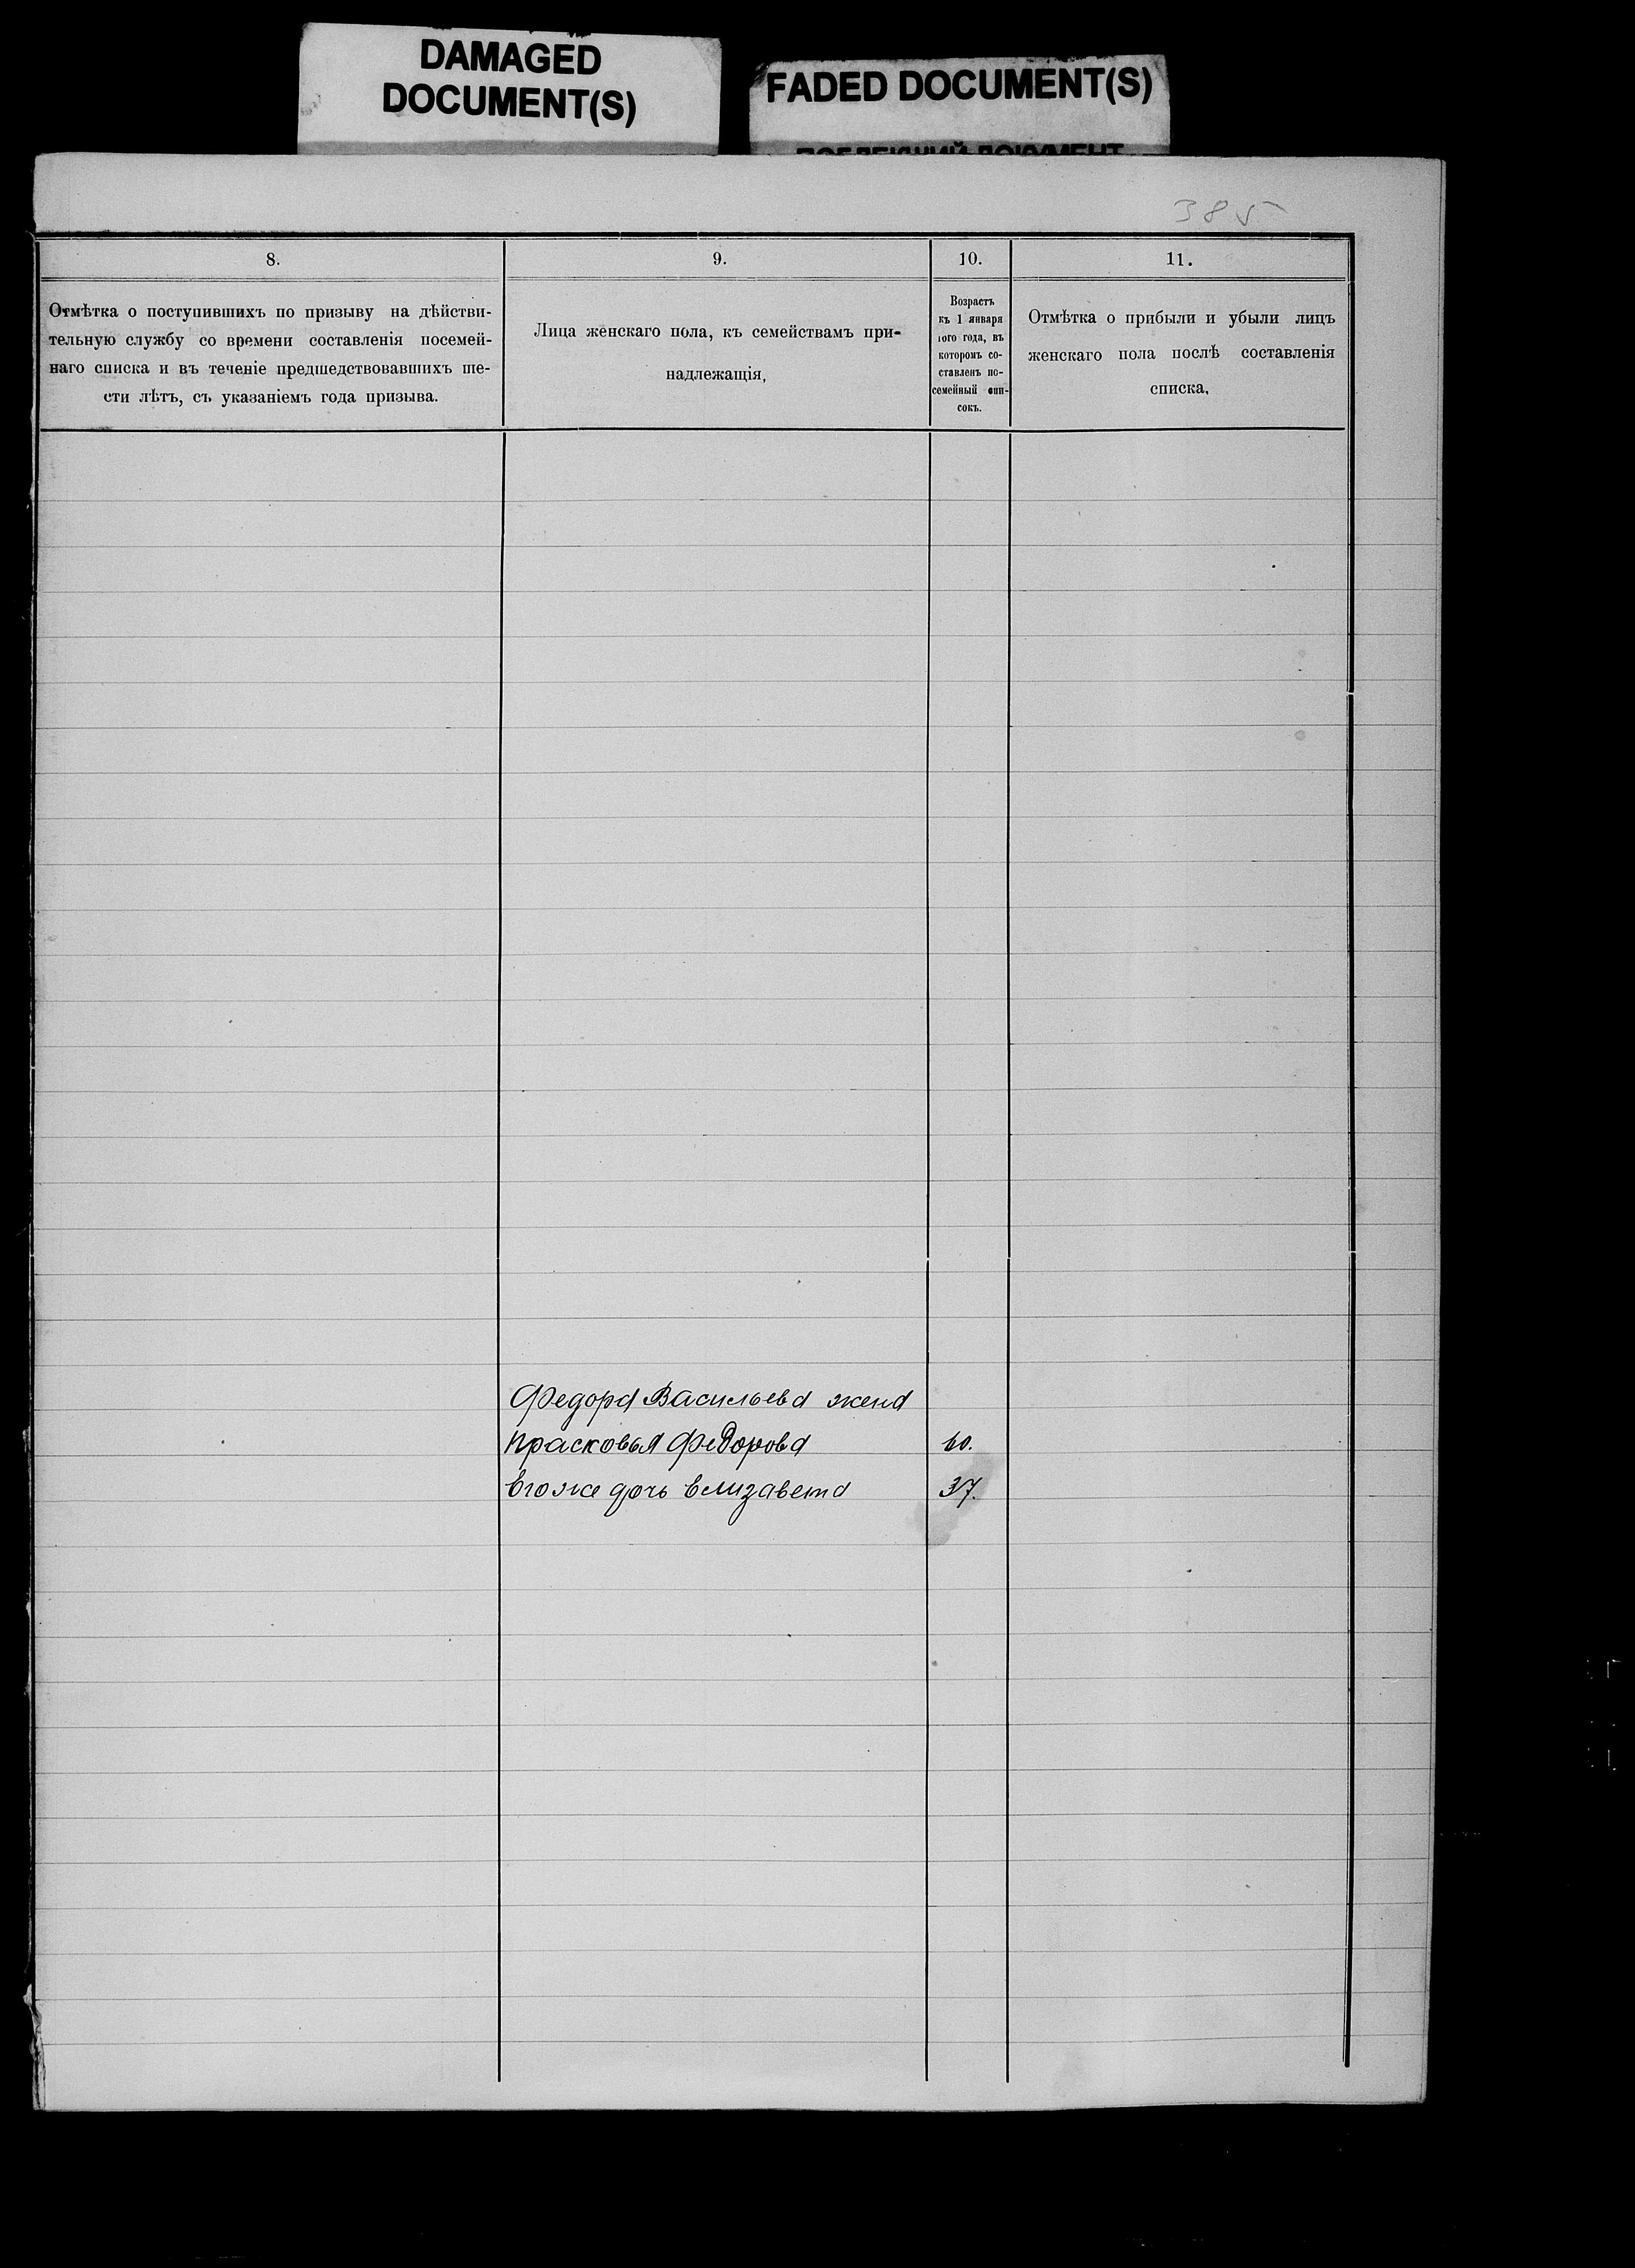 DAMAGED
DOCUMENT(S)
FADED DOCUMENT(S)
385
8.
9.
10.
11.
Отмѣтка о поступившихъ по призыву на дѣйстви-
тельную службу со времени составленія посемей-
наго списка и въ теченіе предшедствовавшихъ ше-
сти лѣтъ, съ указаніемъ года призыва.
Лица женскаго пола, къ семействамъ при-
надлежащія,
Возрастъ
къ 1 января
того года, въ
которомъ со-
ставленъ по-
семейный спи-
сокъ.
Отмѣтка о прибыли и убыли лицъ
женскаго пола послѣ составленія
списка,
Федора Васильева жена
Прасковья Федорова 60.
Его же дочь Елизавета 37.